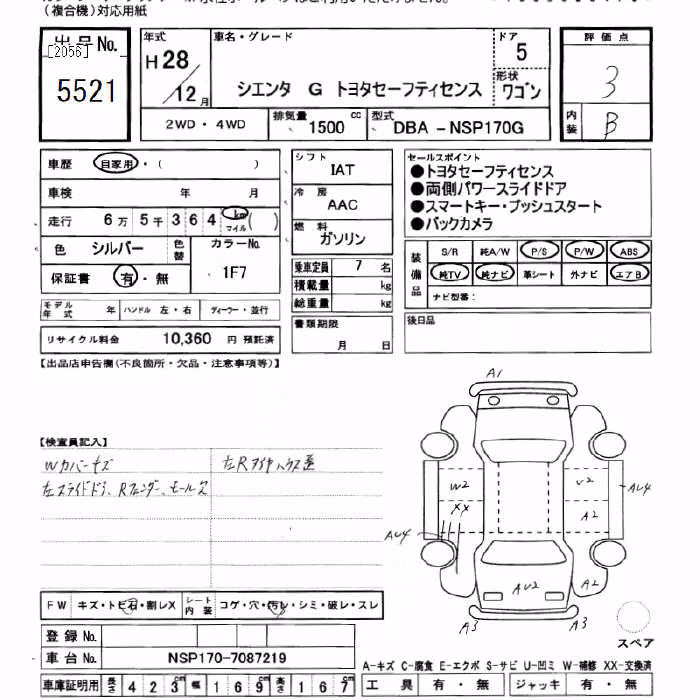 (複合機)対応用紙
出品No.
[2056]
5521
年式
H28/12月
車名・グレード
シエンタ G トヨタセーフティセンス
ドア
5
形状
ワゴン
評価点
3
内装
B
2WD・4WD
排気量
1500 cc
型式
DBA-NSP170G
車歴 自家用・( )
車検 年 月
走行 6万5千364 km マイル ( )
色 シルバー 色替 カラーNo.
保証書 有・無 1F7
モデル年式 年 ハンドル 左・右 ディーラー・並行
リサイクル料金 10,360 円 預託済
シフト
IAT
冷房
AAC
燃料
ガソリン
乗車定員 7 名
積載量 kg
総重量 kg
書類期限
月 日
セールスポイント
●トヨタセーフティセンス
●両側パワースライドドア
●スマートキー・プッシュスタート
●バックカメラ
装備品
S/R 純A/W P/S P/W ABS
純TV 純ナビ 革シート 外ナビ エアB
ナビ型番:
後日品
【出品店申告欄(不良箇所・欠品・注意事項等)】
【検査員記入】
Wカバーキズ
左スライドドア、Rフェンダー、モールズ
左Rタイヤハウス歪
A1
W2
XX
U2
A2
AU4
AU4
AU2
A2
A3
A3
スペア
FW キズ・トビ石・割レX シート内装 コゲ・穴・汚レ・シミ・破レ・スレ
登録No.
車台No. NSP170-7087219
車庫証明用 長さ 423cm 幅 169cm 高さ 167cm
A-キズ C-腐食 E-エクボ S-サビ U-凹ミ W-補修 XX-交換済
工具 有・無 ジャッキ 有・無